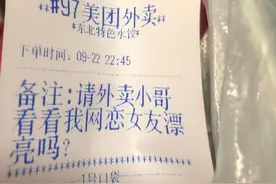 **#97美团外卖
*东北特色水饺*
下单时间：09-22 22:45
备注:请外卖小哥
看看我网恋女友漂
亮吗?
1号口袋